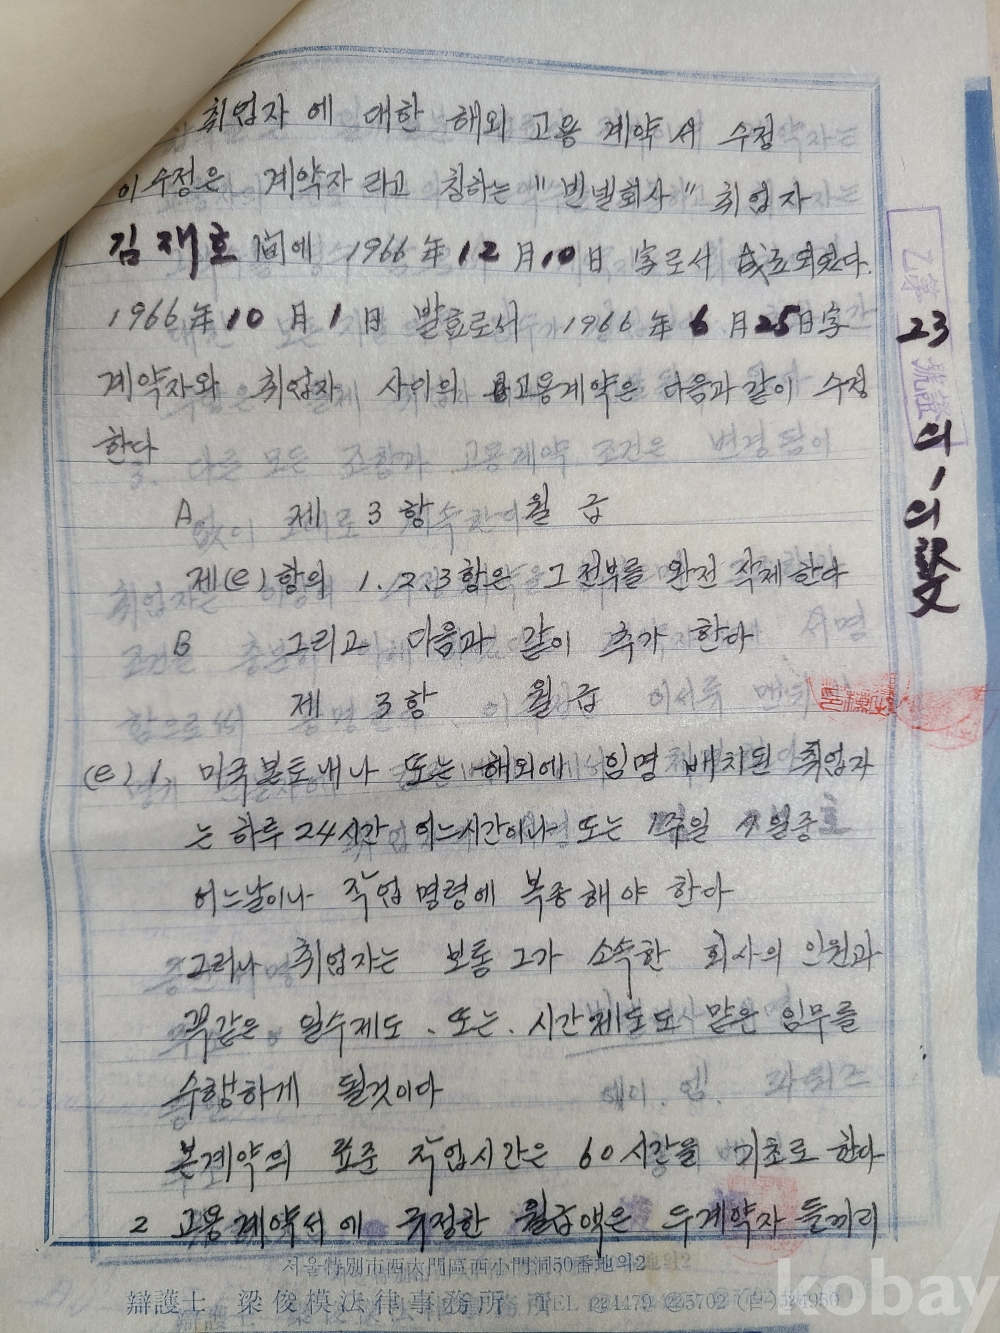 취업자에 대한 해외 고용 계약서 수정
이 수정은 계약자라고 칭하는 "빈넬회사" 취업자
김재호 間에 1966年 12月 10日 字로서 成立되였다.
1966年 10月 1日 발효로서 1966年 6月 25日字
계약자와 취업자 사이의 고용계약은 다음과 같이 수정
한다
A 제 3항 월급
제(e)항의 1.2.3항은 그 전부를 완전 삭제한다
B 그리고 다음과 같이 추가 한다
제 3항 월급
(e) 1. 미국본토내나 또는 해외에 임명 배치된 취업자
는 하루 24시간 어느시간이나 또는 1주일 7일중
어느날이나 작업 명령에 복종해야 한다
그러나 취업자는 보통 그가 소속한 회사의 인원과
꼭같은 일수제도. 또는. 시간제도로 맡은 임무를
수행하게 될것이다
본계약의 표준 작업시간은 60시간을 기초로 한다
2 고용계약서에 규정한 월급액은 두계약자 들끼리
乙第 23 號證
의 1 의 뜻
서울特別市西大門區西小門洞50番地의2
辯護士 梁俊模法律事務所 TEL
kobay